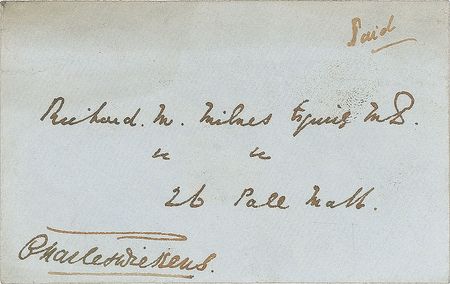 Paid
Richard. M. Milnes Esquire M.P.
" "
26 Pall Mall.
Charles Dickens.